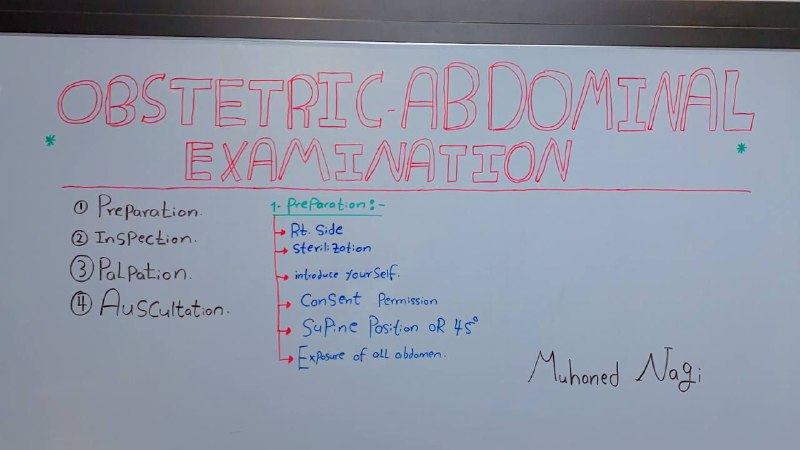 OBSTETRIC-ABDOMINAL
* EXAMINATION *
① Preparation.
② Inspection.
③ Palpation.
④ Auscultation.
1. Preparation:-
Rt. Side
Sterilization
introduce yourself.
Consent Permission
Supine Position OR 45°
Exposure of all abdomen.
Muhaned Nagi